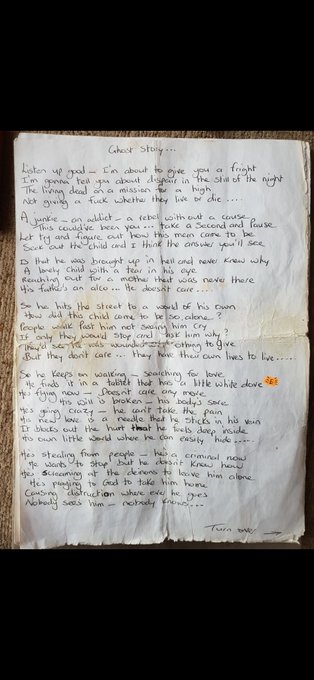 Ghost Story...
Listen up good - I'm about to give you a fright
I'm gonna tell you about despair in the still of the night
The living dead on a mission for a high
Not giving a fuck whether they live or die....
A junkie - an addict - a rebel with out a cause
This could've been you... take a second and pause
Let try and figure out how this man came to be
Seek out the child and I think the answer you'll see
Is that he was brought up in hell and never knew why
A lonely child with a tear in his eye
Reaching out for a mother that was never there
His father's an alco... He doesn't care....
So he hits the street to a world of his own
How did this child come to be so alone?
People walk past him not seeing him cry
If only they would stop and ask him why?
They'd see he was wounded othing to give
But they don't care... they have their own lives to live.....
So he keeps on walking - searching for love
He finds it in a tablet that has a little white dove
Hes flying now - Doesn't care any more
His will is broken - his body's sore
Hes going crazy - he can't take the pain
His new love is a needle that he sticks in his vein
It blocks out the hurt that he feels deep inside
His own little world where he can easily hide.....
Hes stealing from people - hes a criminal now
He wants to stop but he doesn't know how
Hes screaming at the demons to leave him alone
Hes praying to God to take him home
Causing distruction where ever he goes
Nobody sees him - nobody knows....
Turn over →